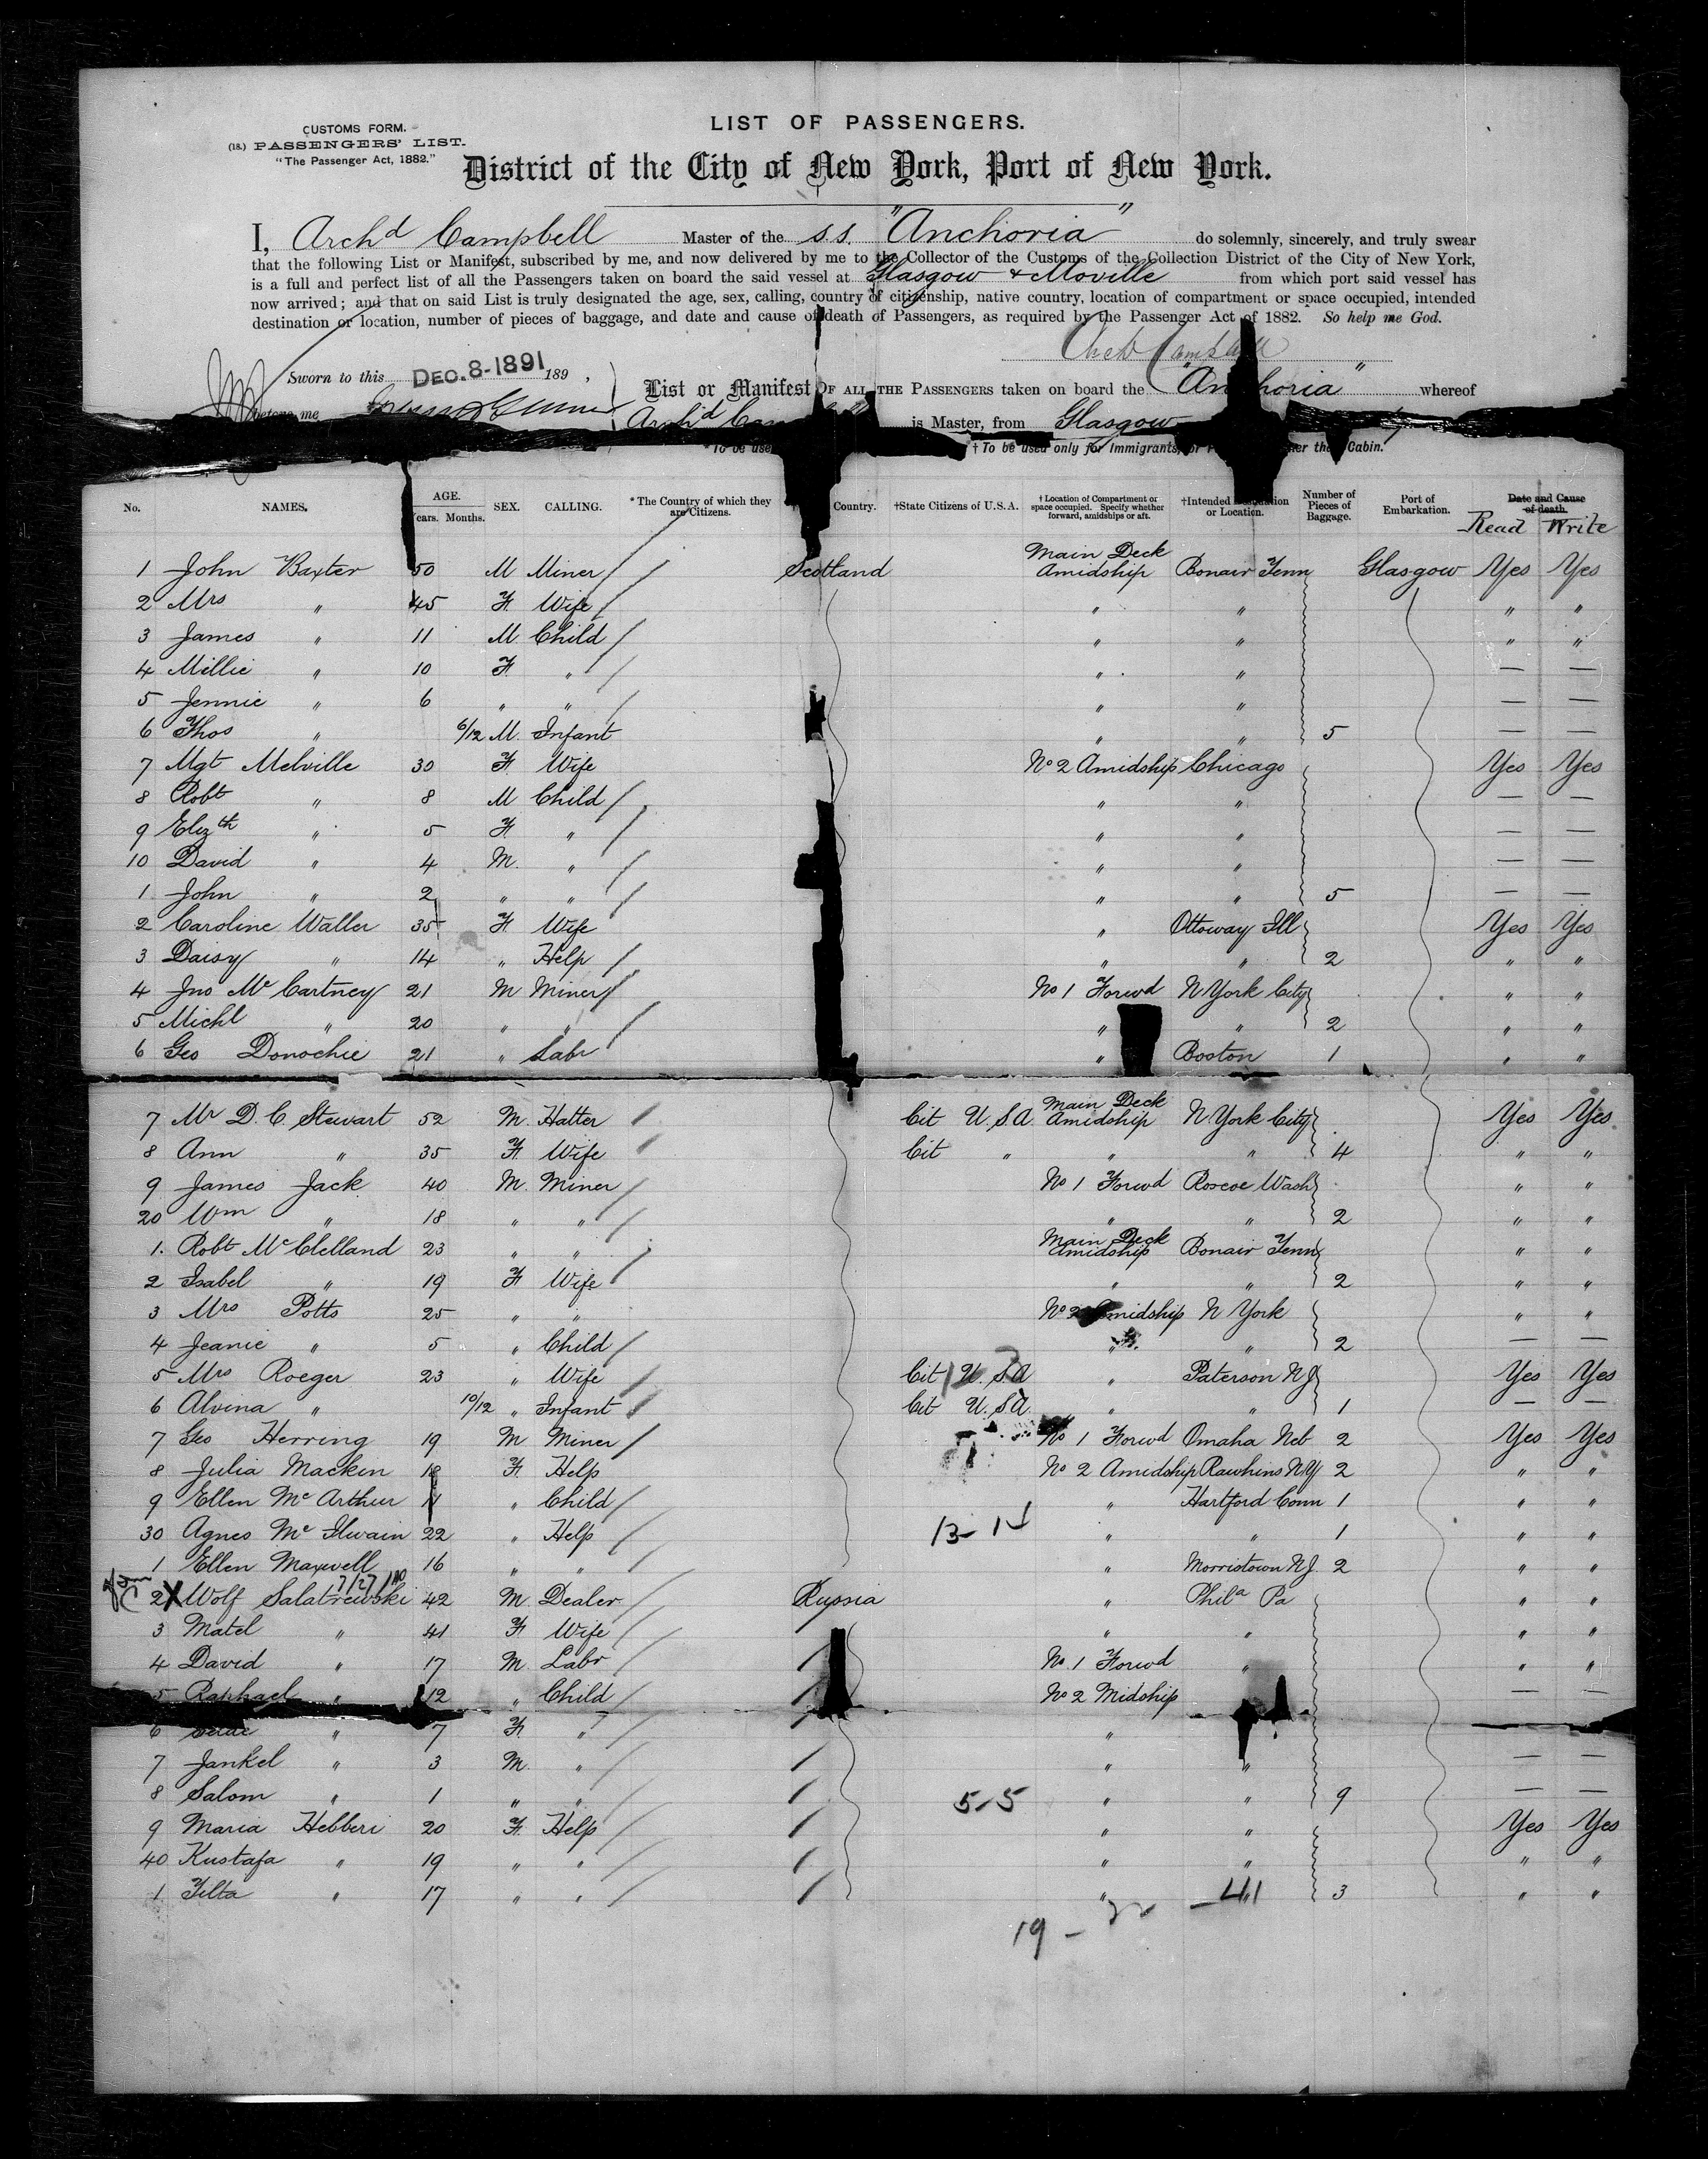 LIST OF PASSENGERS.
CUSTOMS FORM.
(18.) PASSENGERS' LIST.
"The Passenger Act, 1882."
District of the City of New York, Port of New York.
I, Archd Campbell Master of the S.S. "Anchoria" do solemnly, sincerely, and truly swear
that the following List or Manifest, subscribed by me, and now delivered by me to the Collector of the Customs of the Collection District of the City of New York,
is a full and perfect list of all the Passengers taken on board the said vessel at Glasgow & Moville from which port said vessel has
now arrived; and that on said List is truly designated the age, sex, calling, country of citizenship, native country, location of compartment or space occupied, intended
destination or location, number of pieces of baggage, and date and cause of death of Passengers, as required by the Passenger Act of 1882. So help me God.
Archd Campbell
Sworn to this DEC. 8-1891 189 ,
List or Manifest OF ALL THE PASSENGERS taken on board the "Anchoria" whereof
before me
Archd Cam is Master, from Glasgow
* To be use † To be used only for Immigrants, or her than Cabin.
No. NAMES. AGE. Years. Months. SEX. CALLING. * The Country of which they are Citizens. Country. †State Citizens of U.S.A. † Location of Compartment or space occupied. Specify whether forward, amidships or aft. †Intended or Location. Number of Pieces of Baggage. Port of Embarkation. Date and Cause of death. Read Write
1 John Baxter 50 M Miner Scotland Main Deck Amidship Bonair Tenn Glasgow Yes Yes
2 Mrs " 45 F. Wife " " " "
3 James " 11 M. Child " " " "
4 Millie " 10 F. " " " — —
5 Jennie " 6 " " " " — —
6 Thos " 6/12 M. Infant " " 5 — —
7 Mgt Melville 30 F. Wife No 2 Amidship Chicago Yes Yes
8 Robt " 8 M Child " " — —
9 Elizth " 5 F. " " " — —
10 David " 4 M. " " " — —
1 John " 2 " " " " 5 — —
2 Caroline Waller 35 F. Wife " Ottoway Ill Yes Yes
3 Daisy " 14 " Help " " 2 " "
4 Jno McCartney 21 M Miner No 1 Forwd N York City " "
5 Michl " 20 " " " " 2 " "
6 Geo Donochie 21 " Labr " Boston 1 " "
7 Mr D. C. Stewart 52 M. Hatter Cit U.S.A. Main Deck Amidship N York City Yes Yes
8 Ann " 35 F. Wife Cit " " " 4 " "
9 James Jack 40 M. Miner No 1 Forwd Roscoe Wash " "
20 Wm " 18 " " " " 2 " "
1. Robt McClelland 23 " " Main Deck Amidship Bonair Tenn " "
2 Isabel " 19 F Wife " " 2 " "
3 Mrs Potts 25 " " No 2 Amidship N York " "
4 Jeanie " 5 " Child " " 2 — —
5 Mrs Roeger 23 " Wife Cit U.S.A " Paterson N J Yes Yes
6 Alvina " 10/12 " Infant Cit U.S.A. " " 1 — —
7 Geo Herring 19 M Miner No 1 Forwd Omaha Neb 2 Yes Yes
8 Julia Macken 18 F. Help No 2 Amidship Rawhins N Y 2 " "
9 Ellen McArthur 11 " Child " Hartford Conn 1 " "
30 Agnes McIlwain 22 " Help 13- " " 1 " "
1 Ellen Maxwell 16 " " " Morristown N J. 2 " "
7/27/
2 X Wolf Salatrewski 42 M. Dealer Russia " Phila Pa " "
3 Matel " 41 F Wife " " " "
4 David " 17 M. Labr No 1 Forwd " " "
5 Raphael " 12 " Child No 2 Midship — —
6 " 7 F. " "
7 Jankel " 3 M. " " " — —
8 Salom " 1 " " 5-5 " " 9 — —
9 Maria Hebberi 20 F. Help " " Yes Yes
40 Kustafa " 19 " " " " " "
1 Tilta " 17 " " " " 3 " "
19 - 22 - 41